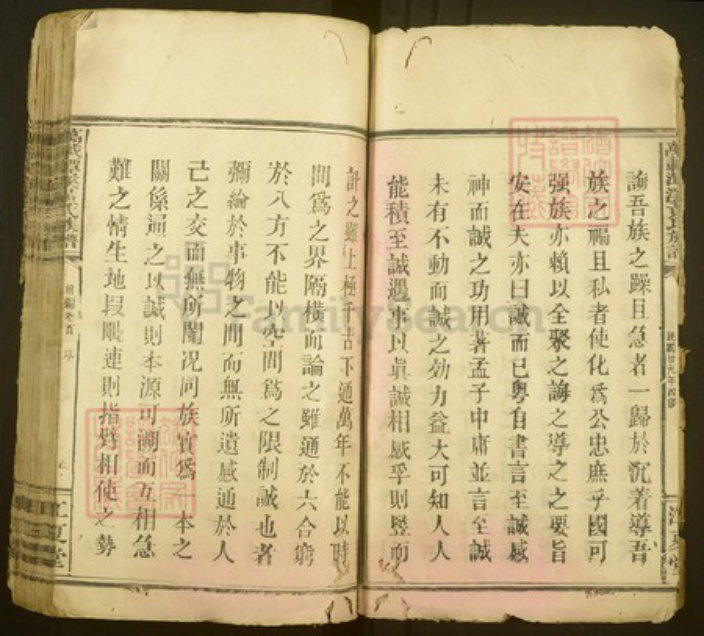 誨吾族之躁且急者一歸於沉着導吾
族之褊且私者使化為公忠庶乎國可
强族亦賴以全聚之誨之導之之要旨
安在夫亦曰誠而已粤自書言至誠感
神而誠之功用著孟子中庸並言至誠
未有不動而誠之効力益大可知人人
能積至誠遇事以眞誠相感孚則竪而
計之雖上極千古下通萬年不能以時
間為之界隔橫而論之雖通於六合窮
於八方不能以空間為之限制誠也者
彌綸於事物之間而無所遺感通於人
己之交而無所閡况同族實為一本之
關係逼之以誠則本源可溯而互相急
難之情生地段毗連則指臂相使之勢
族譜
首 序
江夏堂
FamilySearch